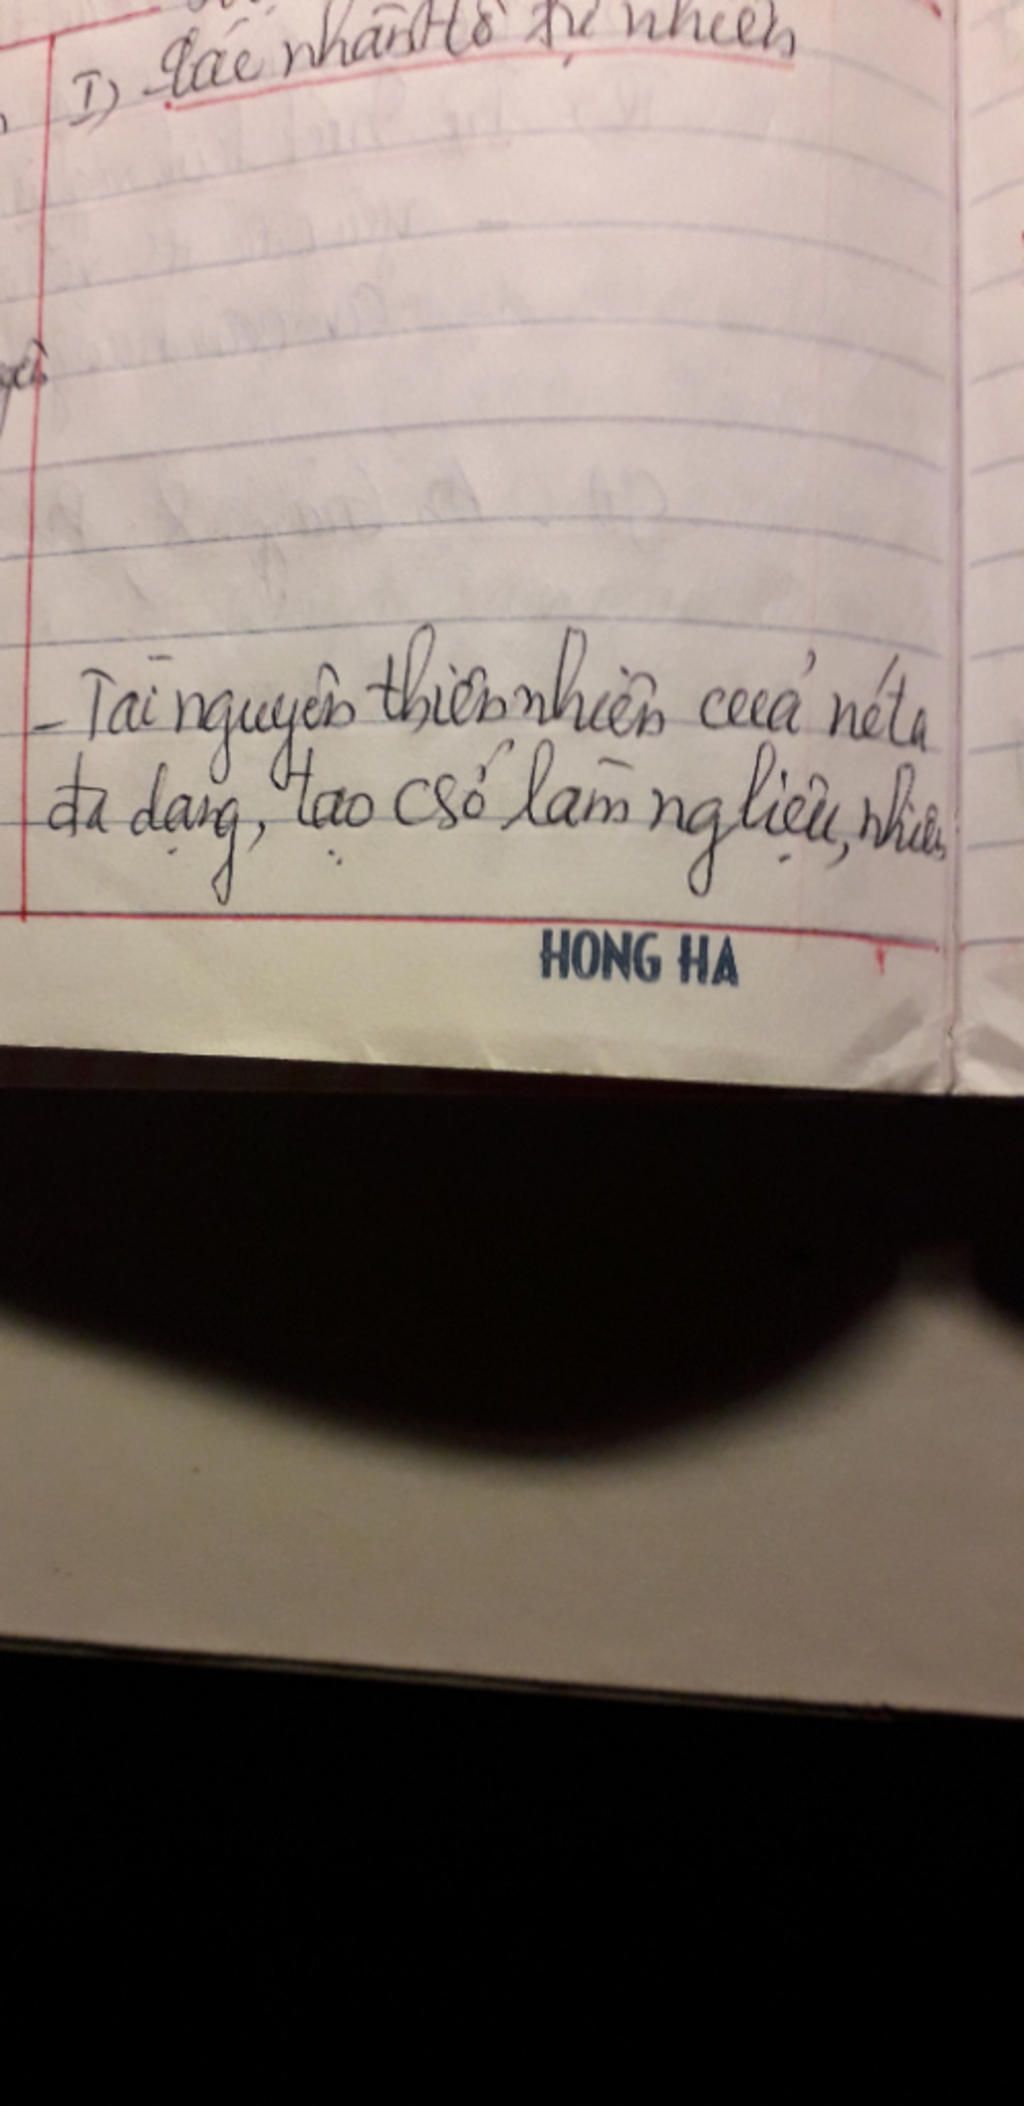 I) Các nhân tố tự nhiên
- Tài nguyên thiên nhiên của nc ta
đa dạng, tạo csở làm ng liệu, nhiên
HONG HA